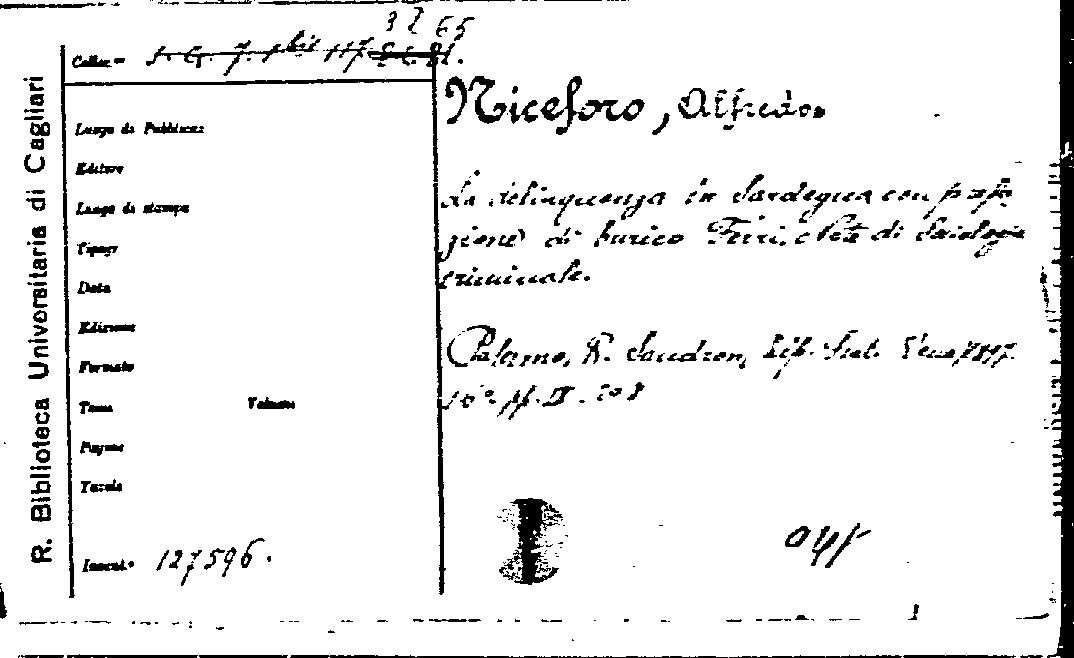 R. Biblioteca Universitaria di Cagliari
3 Z 65
Colloc.=
Luogo di Pubblicaz
Editore
Luogo di stampa
Tipogr
Data
Edizione
Formato
Tomo Volume
Pagine
Tavole
Invent.° 127596.
Niceforo, Alfredo.
La delinquenza in Sardegna con prefa
zione di Enrico Ferri. di Sociologia
criminale.
Palermo, R. Sandron,
16° pp. 208